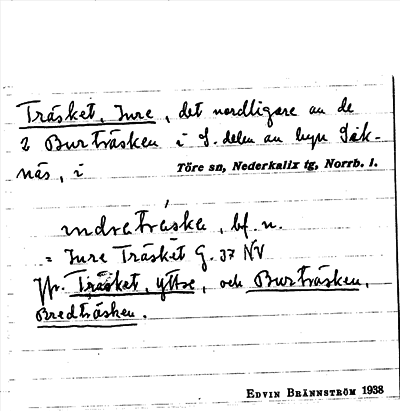 Träsket, Inre, det nordligare av de
2 Burträsken i S. delen av byn Säk-
näs, i Töre sn, Nederkalix tg, Norrb. l.
indratraska, bf. n.
= Inre Träsket G. 37 NV
Jfr. Träsket, yttre, och Burträsken,
Bredträsken.
EDVIN BRÄNNSTRÖM 1938